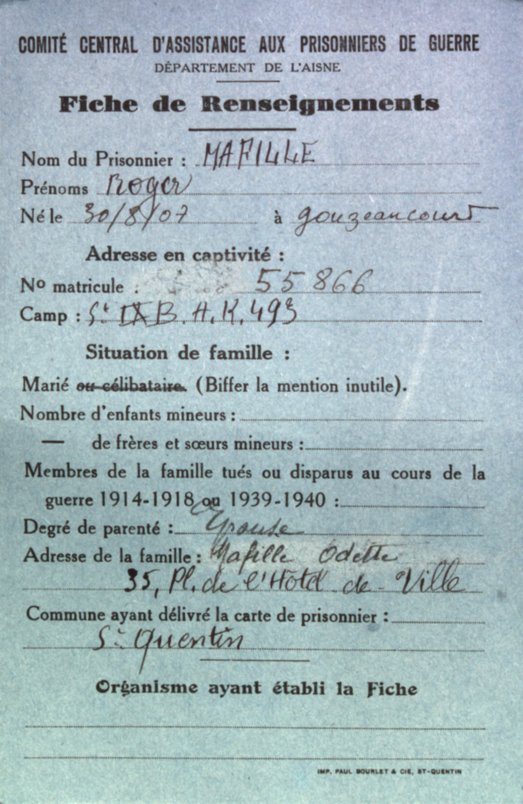 COMITÉ CENTRAL D'ASSISTANCE AUX PRISONNIERS DE GUERRE
DÉPARTEMENT DE L'AISNE
Fiche de Renseignements
Nom du Prisonnier : MAFILLE
Prénoms Roger
Né le 30/8/07 à gouzeaucourt
Adresse en captivité :
No matricule : 55866
Camp : St IXB. A.K. 493
Situation de famille :
Marié ou célibataire. (Biffer la mention inutile).
Nombre d'enfants mineurs :
— de frères et sœurs mineurs :
Membres de la famille tués ou disparus au cours de la
guerre 1914-1918 ou 1939-1940 :
Degré de parenté : Epouse
Adresse de la famille : Mafille Odette
35, Pl. de l'Hotel de Ville
Commune ayant délivré la carte de prisonnier :
St Quentin
Organisme ayant établi la Fiche
IMP. PAUL BOURLET & CIE, ST-QUENTIN